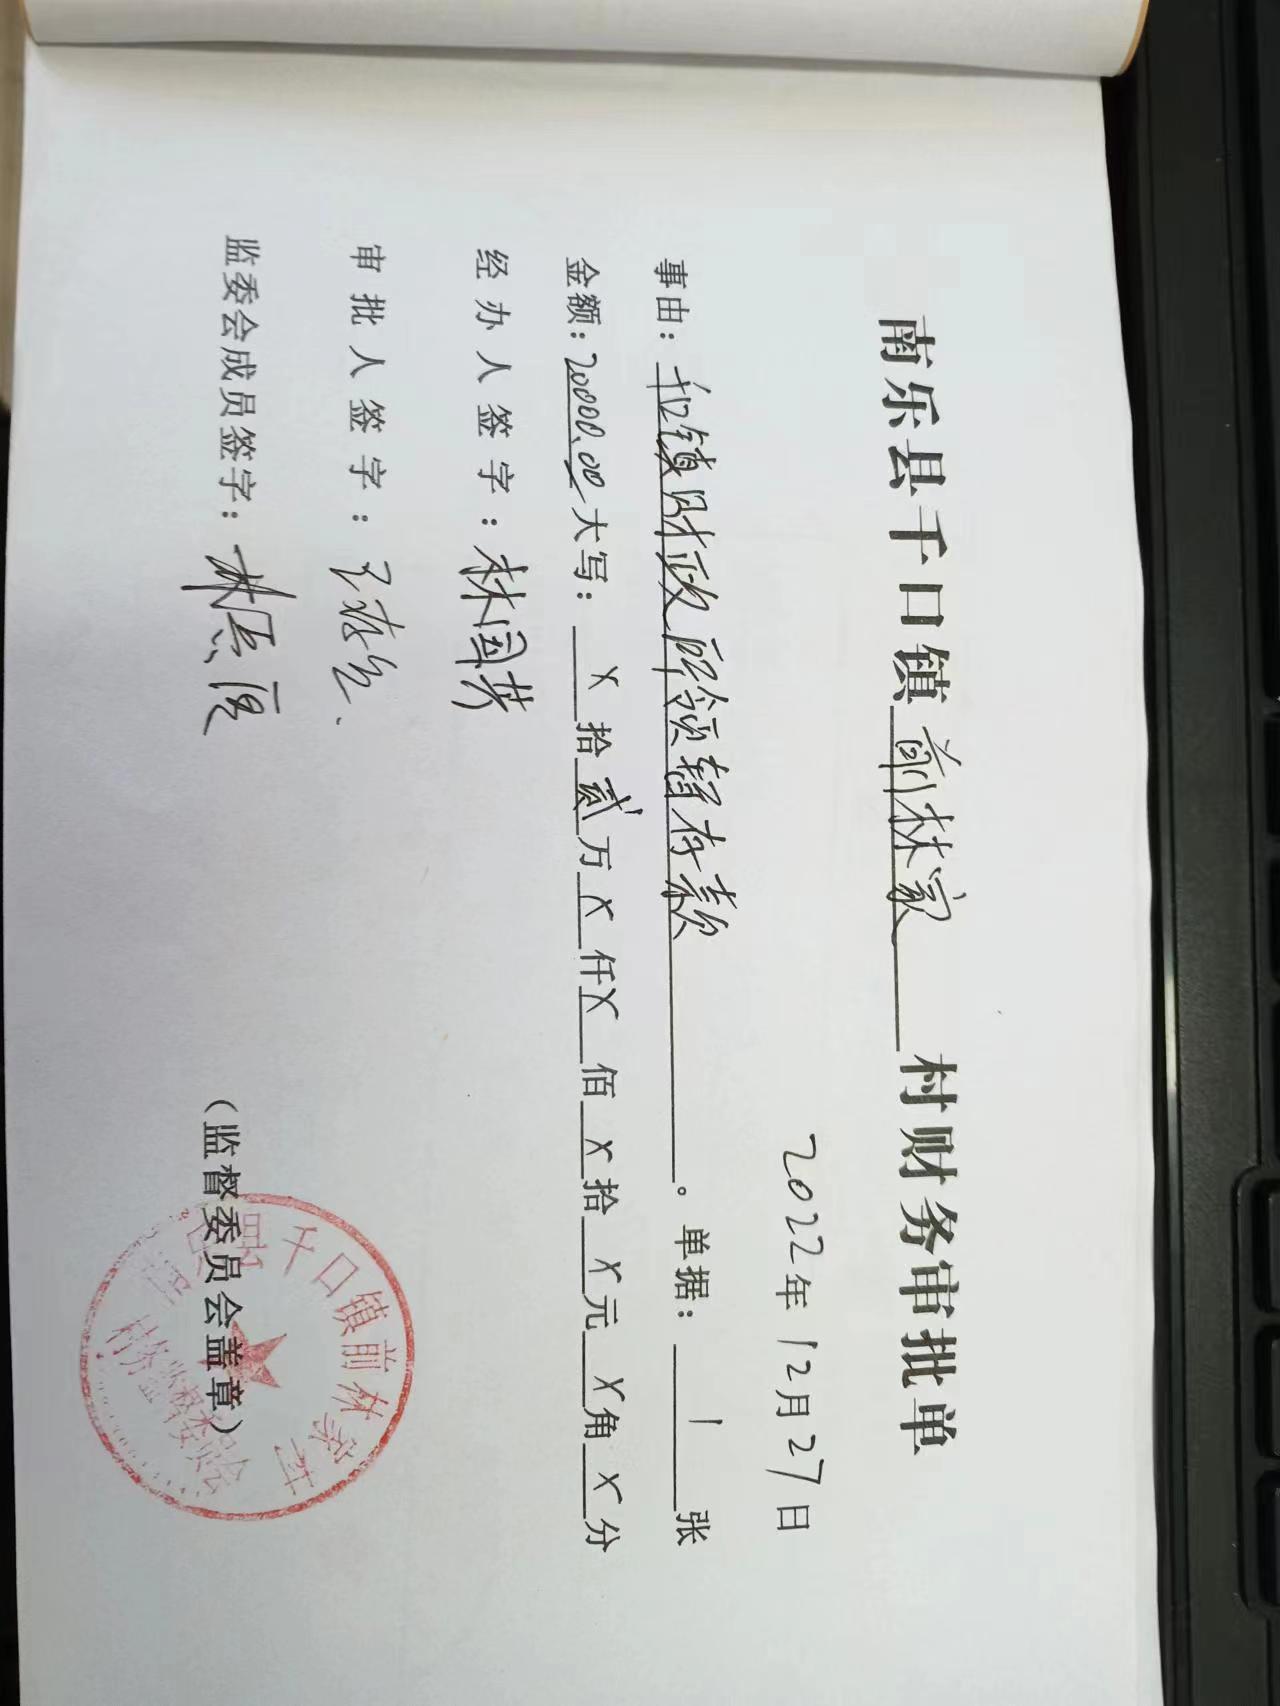 南乐县千口镇前林家村财务审批单
2022年12月27日
事由：千口镇财政所领暂存款。单据：1张
金额：20000.00大写：X拾贰万X仟X佰X拾X元X角X分
经办人签字：林国芬
审批人签字：
监委会成员签字：林
（监督委员会盖章）
南乐县千口镇前林家村
村务监督委员会